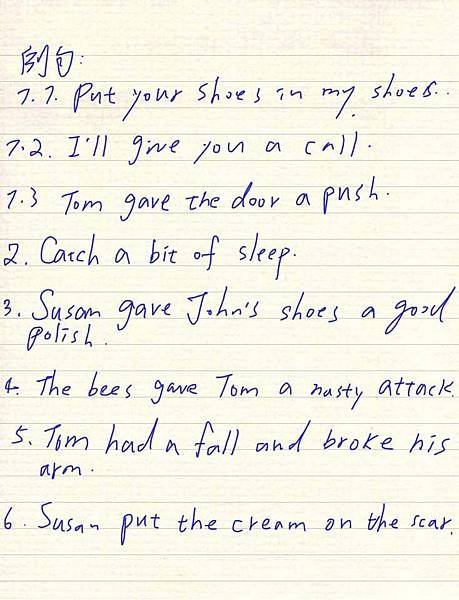 例句:
1.1. Put your shoes in my shoes..
1.2. I'll give you a call.
1.3 Tom gave the door a push.
2. Catch a bit of sleep.
3. Susan gave John's shoes a good
polish.
4. The bees gave Tom a nasty attack.
5. Tom had a fall and broke his
arm.
6. Susan put the cream on the scar.